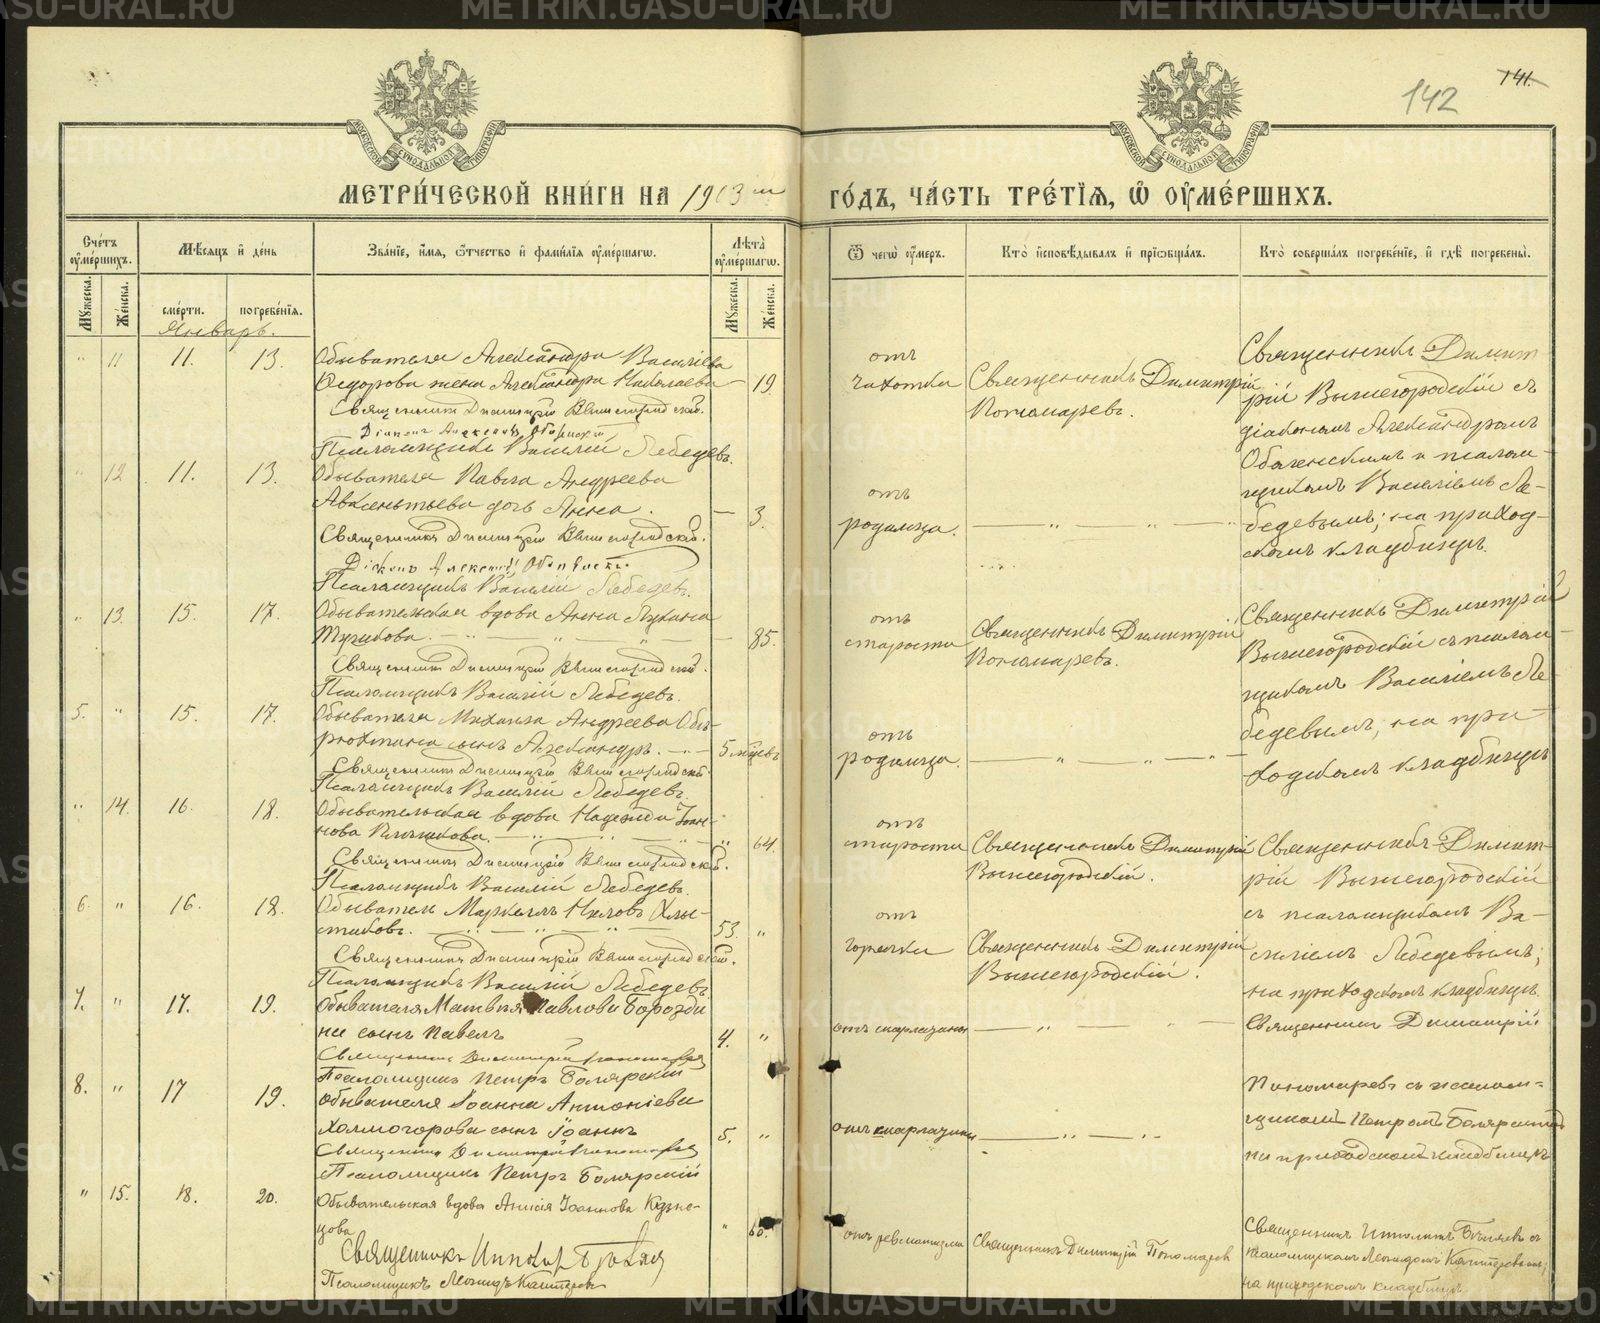 142
141.
МОСКОВСКОЙ СѴНОДАЛЬНОЙ ТИПОГРАФІИ
МОСКОВСКОЙ СѴНОДАЛЬНОЙ ТИПОГРАФІИ
МЕТРИ́ЧЕСКОЙ КНИ́ГИ НА 1903 й
ГО́ДЪ, ЧА́СТЬ ТРЕ́ТІѦ, Ѡ҆ ОУ҆МЕ́РШИХЪ.
Сче́тъ оу҆ме́ршихъ.
Мѣ́сяцъ и҆ де́нь
Зва́нїе, и҆́мѧ, ѻ҆́тчество и҆ фами́лїѧ оу҆ме́ршагѡ.
Лѣ́та оу҆ме́ршагѡ.
Ѿ чегѡ̀ оу҆́меръ.
Кто̀ и҆сповѣ́дывалъ и҆ прїѡбща́лъ.
Кто̀ соверша́лъ погребе́нїе, и҆ гдѣ̀ погребены̀.
Мꙋ́жеска.
Же́нска.
сме́рти.
погребе́нїѧ.
Мꙋ́жеска.
Же́нска.
Январь.
" 11 11. 13. Обывателя Александра Василіева
Ѳедорова жена Александра Николаева — 19
Священникъ Димитрій Вышегородскій.
Діаконъ Александръ
Псаломщикъ Василій Лебедевъ.
отъ
чахотки
Священникъ Димитрій
Пономаревъ.
Священникъ Димит-
рій Вышегородскій съ
діакономъ Александромъ
и псалом-
щикомъ Василіемъ Ле-
бедевымъ; на приход-
скомъ кладбищѣ.
" 12 11. 13. Обывателя Павла Андреева
Авксентьева дочь Анна. — 3.
Священникъ Димитрій Вышегородскій.
Діаконъ Александръ
Псаломщикъ Василій Лебедевъ.
отъ
родимца. — " — " — "
" 13. 15. 17. Обывательская вдова Анна Лукина
— " — " — 85.
Священникъ Димитрій Вышегородскій.
Псаломщикъ Василій Лебедевъ.
отъ
старости
Священникъ Димитрій
Пономаревъ.
Священникъ Димитрій
Вышегородскій съ псалом-
щикомъ Василіемъ Ле-
бедевымъ, на при-
ходскомъ кладбищѣ
5. " 15. 17. Обывателя Михаила Андреева
сынъ Александръ. — " — 5 мѣсяцевъ
Священникъ Димитрій Вышегородскій.
Псаломщикъ Василій Лебедевъ.
отъ
родимца. — " — " — "
" 14. 16. 18. Обывательская вдова Надежда Іоан-
нова — " — " — " 64.
Священникъ Димитрій Вышегородскій.
Псаломщикъ Василій Лебедевъ.
отъ
старости
Священникъ Димитрій
Вышегородскій.
Священникъ Димит-
рій Вышегородскій
съ псаломщикомъ Ва-
силіемъ Лебедевымъ;
на приходскомъ кладбищѣ.
6. " 16. 18. Обыватель Маркеллъ Ниловъ Хлы-
стиковъ. — " — " — 53. "
Священникъ Димитрій Вышегородскій.
Псаломщикъ Василій Лебедевъ.
отъ
горячки
Священникъ Димитрій
Вышегородскій.
7. " 17. 19. Обывателя Матвѣя Павлова Борозди
на сынъ Павелъ 4. "
Священникъ Димитрій Пономаревъ
Псаломщикъ Петръ Боярскій
отъ скарлатины — " — " — "
Священникъ Димитрій
Пономаревъ съ псалом-
щикомъ Петромъ Боярскимъ
на приходскомъ кладбищѣ
8. " 17 19. Обывателя Іоанна Антоніева
Холмогорова сынъ Іоаннъ 5. "
Священникъ Димитрій Пономаревъ
Псаломщикъ Петръ Боярскій
отъ скарлатины — " — "
" 15. 18. 20. Обывательская вдова Анисія Іоаннова Кузне-
цова " 60.
Священникъ
Псаломщикъ Леонидъ
отъ ревматизма
Священникъ Димитрій Пономаревъ
Священникъ Ипполитъ съ
псаломщикомъ Леонидомъ
на приходскомъ кладбищѣ.
METRIKI.GASO-URAL.RU